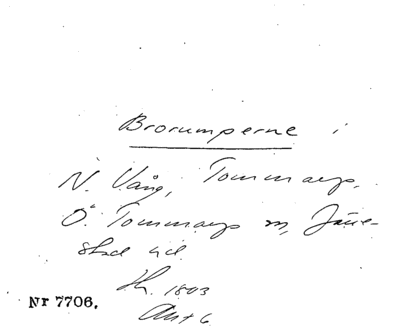 Brorumperne i
N. Vång, Tommarp,
Ö. Tommarp m, Järre-
stad
1803
Akt 6
Nr 7706.